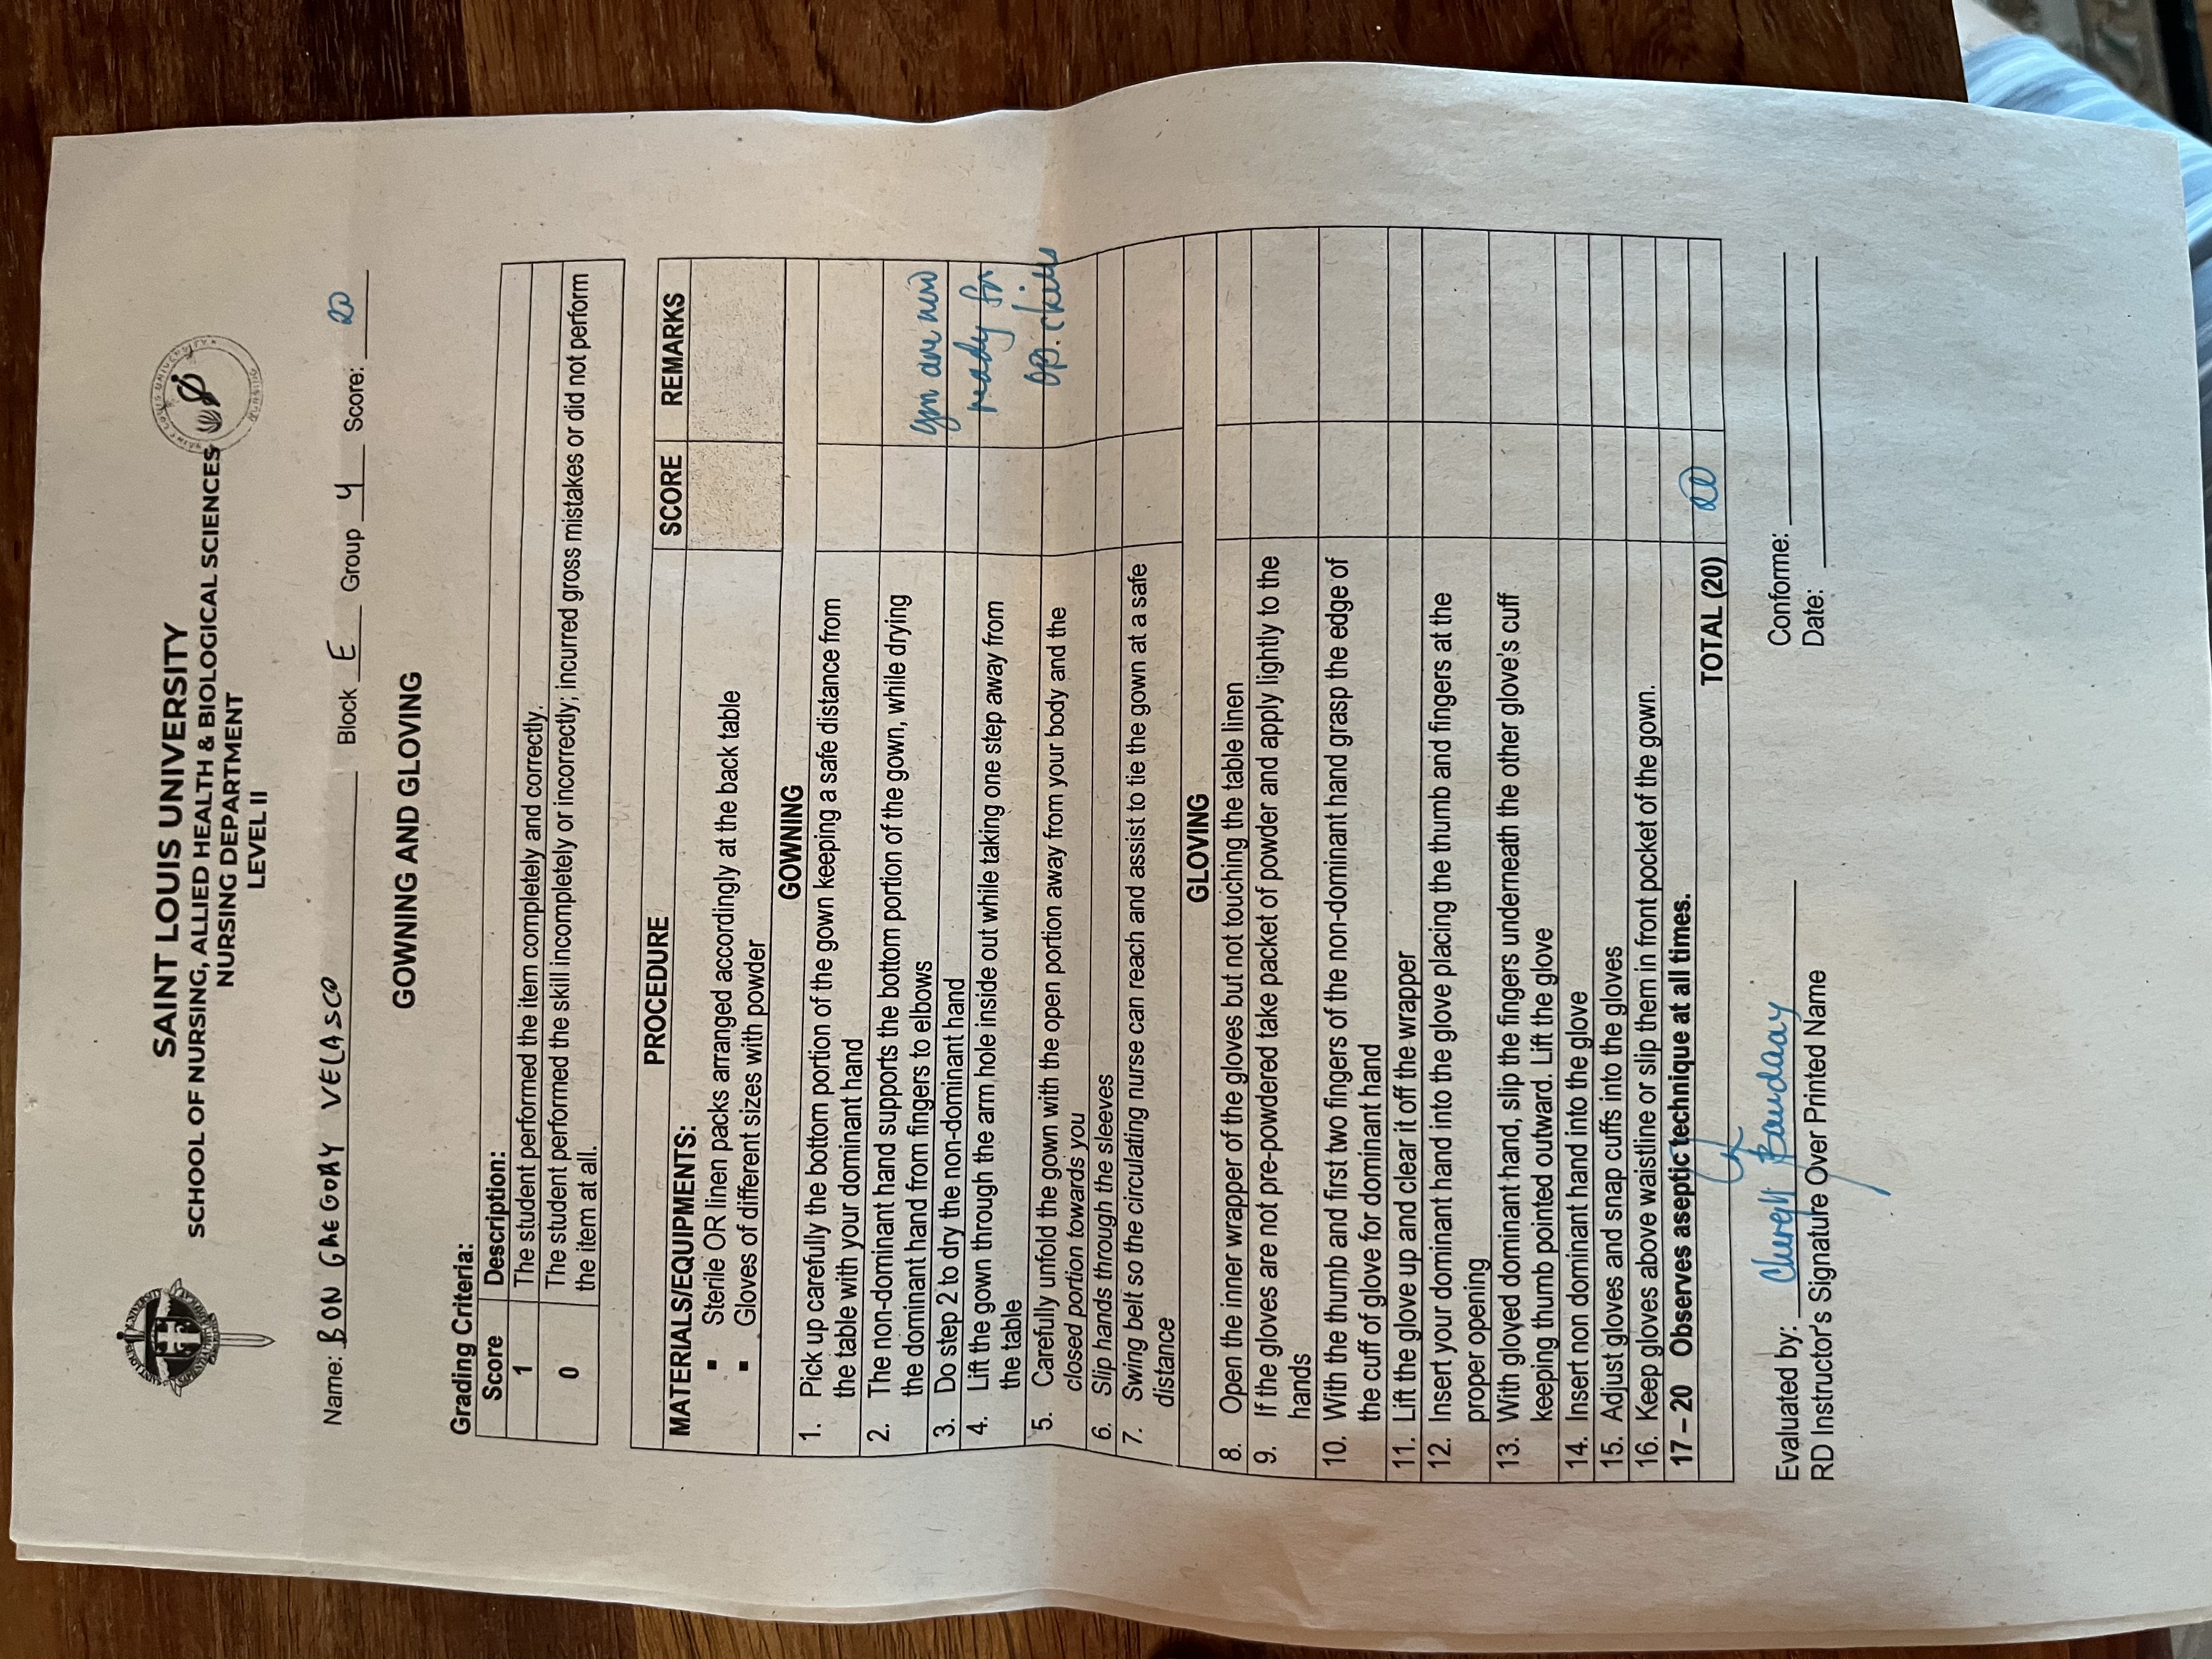 SAINT LOUIS UNIVERSITY
SCHOOL OF NURSING, ALLIED HEALTH & BIOLOGICAL SCIENCES
NURSING DEPARTMENT
LEVEL II
Name: BON GREGORY VELASCO Block E Group 4 Score: 20
GOWNING AND GLOVING
Grading Criteria:
Score Description:
1 The student performed the item completely and correctly.
0 The student performed the skill incompletely or incorrectly; incurred gross mistakes or did not perform
the item at all.
PROCEDURE SCORE REMARKS
MATERIALS/EQUIPMENTS:
▪ Sterile OR linen packs arranged accordingly at the back table
▪ Gloves of different sizes with powder
GOWNING
1. Pick up carefully the bottom portion of the gown keeping a safe distance from
the table with your dominant hand
2. The non-dominant hand supports the bottom portion of the gown, while drying
the dominant hand from fingers to elbows
you are now
3. Do step 2 to dry the non-dominant hand
4. Lift the gown through the arm hole inside out while taking one step away from
the table
ready for
5. Carefully unfold the gown with the open portion away from your body and the
closed portion towards you
op. skills
6. Slip hands through the sleeves
7. Swing belt so the circulating nurse can reach and assist to tie the gown at a safe
distance
GLOVING
8. Open the inner wrapper of the gloves but not touching the table linen
9. If the gloves are not pre-powdered take packet of powder and apply lightly to the
hands
10. With the thumb and first two fingers of the non-dominant hand grasp the edge of
the cuff of glove for dominant hand
11. Lift the glove up and clear it off the wrapper
12. Insert your dominant hand into the glove placing the thumb and fingers at the
proper opening
13. With gloved dominant hand, slip the fingers underneath the other glove's cuff
keeping thumb pointed outward. Lift the glove
14. Insert non dominant hand into the glove
15. Adjust gloves and snap cuffs into the gloves
16. Keep gloves above waistline or slip them in front pocket of the gown.
17 – 20 Observes aseptic technique at all times.
TOTAL (20) 20
Evaluated by:
RD Instructor's Signature Over Printed Name
Conforme:
Date: